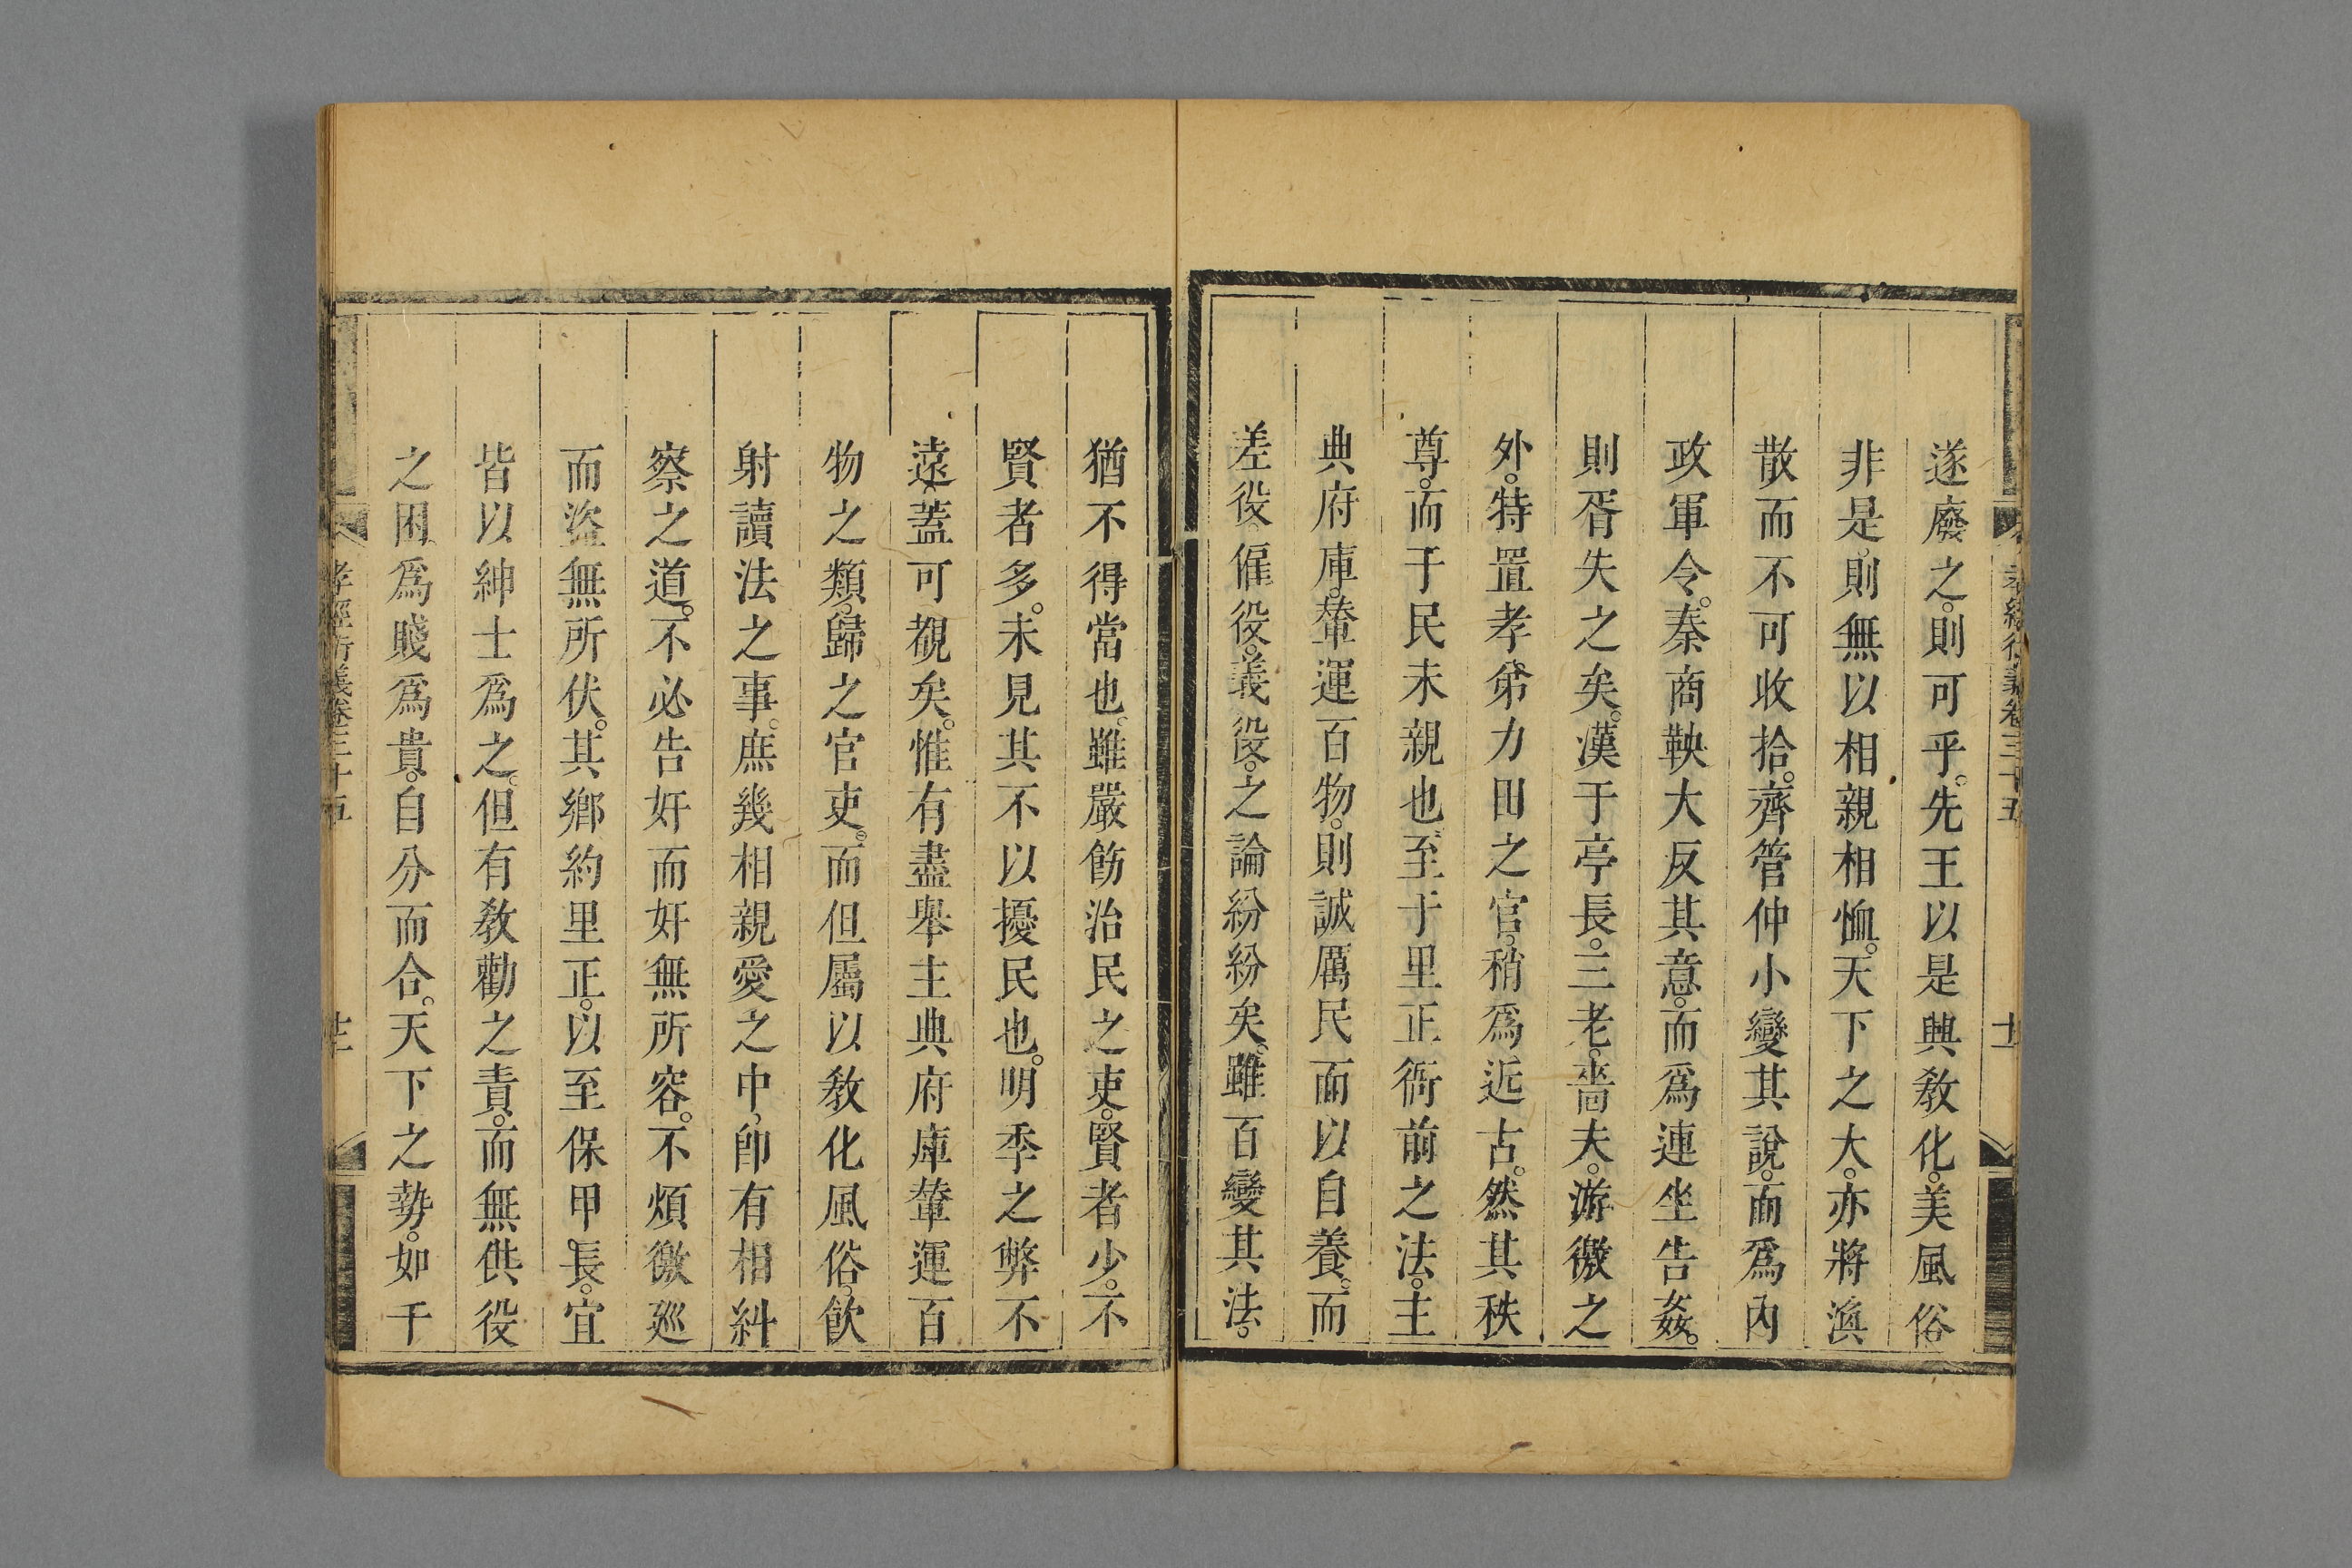 遂廢之。則可乎。先王以是興敎化。美風俗
非是。則無以相親相恤。天下之大。亦將渙
散而不可收拾。齊管仲小變其說。而爲內
政軍令。秦商鞅大反其意。而爲連坐告姦。
則胥失之矣。漢于亭長。三老。嗇夫。游徼之
外。特置孝弟力田之官。稍爲近古。然其秩
尊。而于民未親也。至于里正衙前之法。主
典府庫。輦運百物。則誠厲民而以自養。而
差役。僱役。義役。之論紛紛矣。雖百變其法。
猶不得當也。雖嚴飭治民之吏。賢者少。不
賢者多。未見其不以擾民也。明季之弊不
遠。蓋可覩矣。惟有盡舉主典府庫輦運百
物之類。歸之官吏。而但屬以敎化風俗。飮
射讀法之事。庶幾相親愛之中。卽有相糾
察之道。不必告奸而奸無所容。不煩徼廵
而盜無所伏。其鄉約里正。以至保甲長。宜
皆以紳士爲之。但有敎勸之責。而無供役
之困。爲賤爲貴。自分而合。天下之勢。如干
孝經衍義卷三十五